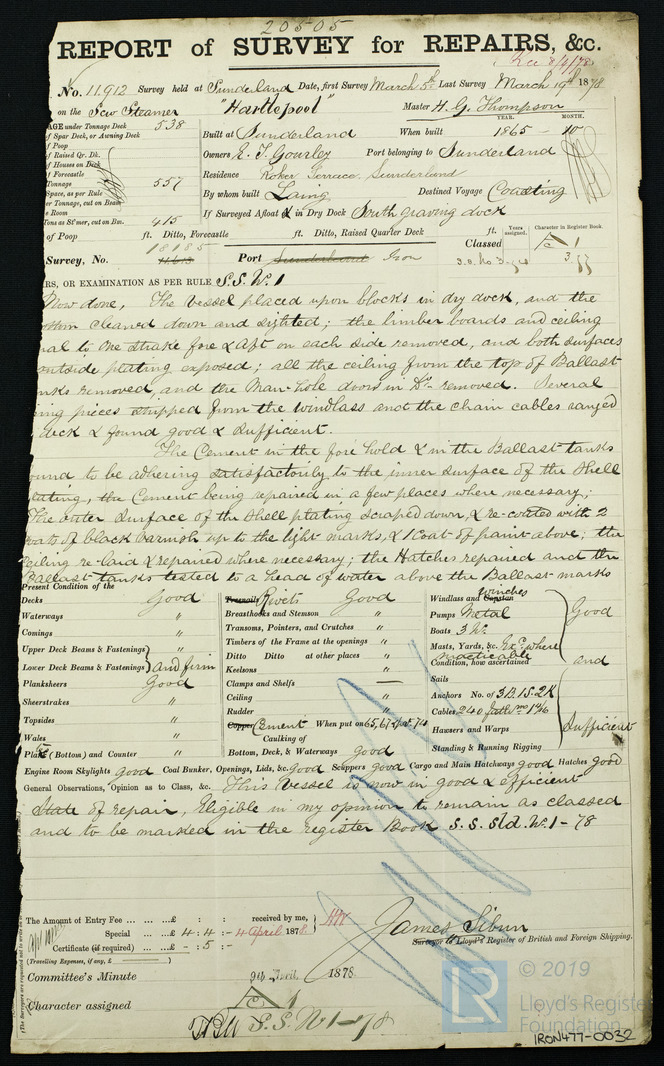 20505
REPORT of SURVEY for REPAIRS, &c.
Rec 8/4/78
No. 11.912 Survey held at Sunderland Date, first Survey March 5th Last Survey March 19th 1878
on the Scw Steamer "Hartlepool" Master H. G. Thompson
AGE under Tonnage Deck 538
of Spar Deck, or Awning Deck
of Poop
of Raised Qr. Dk.
of Houses on Deck
of Forecastle
Tonnage 557
Space, as per Rule
er Tonnage, cut on Beam
e Room
Tons as St'mer, cut on Bm. 415
YEAR. MONTH.
Built at Sunderland When built 1865 - 10
Owners E. T. Gourley Port belonging to Sunderland
Residence Roker Terrace, Sunderland
By whom built Laing Destined Voyage Coasting
If Surveyed Afloat & in Dry Dock South graving dock
of Poop ft. Ditto, Forecastle ft. Ditto, Raised Quarter Deck ft.
Years assigned. Character in Register Book.
18185
Survey, No. Port Sunderland Iron Classed
RS, OR EXAMINATION AS PER RULE S.S. No. 1
Now done, The vessel placed upon blocks in dry dock, and the
ottom cleaned down and sighted; the limber boards and ceiling
ual to one strake fore & aft on each side removed, and both surfaces
outside plating exposed; all the ceiling from the top of Ballast
nks removed, and the Man-hole doors in Do. removed. Several
ing pieces stripped from the windlass and the chain cables ranged
deck & found good & sufficient.
The Cement in the fore hold & in the Ballast tanks
ound to be adhering satisfactorily to the inner surface of the shell
lating, the Cement being repaired in a few places where necessary;
The outer surface of the shell plating scraped down, & re-coated with 2
coats of black varnish up to the light marks, & 1 coat of paint above; the
ceiling re-laid & repaired where necessary; the Hatches repaired and the
Ballast tanks tested to a head of water above the Ballast marks
Present Condition of the
Decks Good
Waterways "
Comings "
Upper Deck Beams & Fastenings
Lower Deck Beams & Fastenings and firm
Planksheers Good
Sheerstrakes "
Topsides "
Wales "
Plank (Bottom) and Counter "
Treenails Rivets Good
Breasthooks and Stemson "
Transoms, Pointers, and Crutches "
Timbers of the Frame at the openings "
Ditto Ditto at other places "
Keelsons "
Clamps and Shelfs —
Ceiling "
Rudder "
Copper Cement When put on
Caulking of
Bottom, Deck, & Waterways good
Windlass and Capstan winches
Pumps Metal
Boats 3 No.
Masts, Yards, &c. Exd. where practicable
Condition, how ascertained
Good
and
Sails
Anchors No. of 3B. 1S. 2K
Cables 240
Hawsers and Warps
Standing & Running Rigging
Sufficient
Engine Room Skylights good Coal Bunker, Openings, Lids, &c. good Scuppers good Cargo and Main Hatchways good Hatches good
General Observations, Opinion as to Class, &c. This Vessel is now in good & efficient
State of repair, Eligible in my opinion to remain as classed
and to be marked in the register Book S.S. Sld. No. 1 - 78
The Amount of Entry Fee ... ... ...£ : :
Special ... ...£ 4 : 4 : -
Certificate (if required) ... ...£ - : 5 : -
received by me,
4 April 1878
(Travelling Expenses, if any, £ )
James Sibun
Surveyor to Lloyd's Register of British and Foreign Shipping.
Committee's Minute 9th April 1878
Character assigned
S.S. No 1 - 78
© 2019
Lloyd's Register
Foundation
IRON477-0032